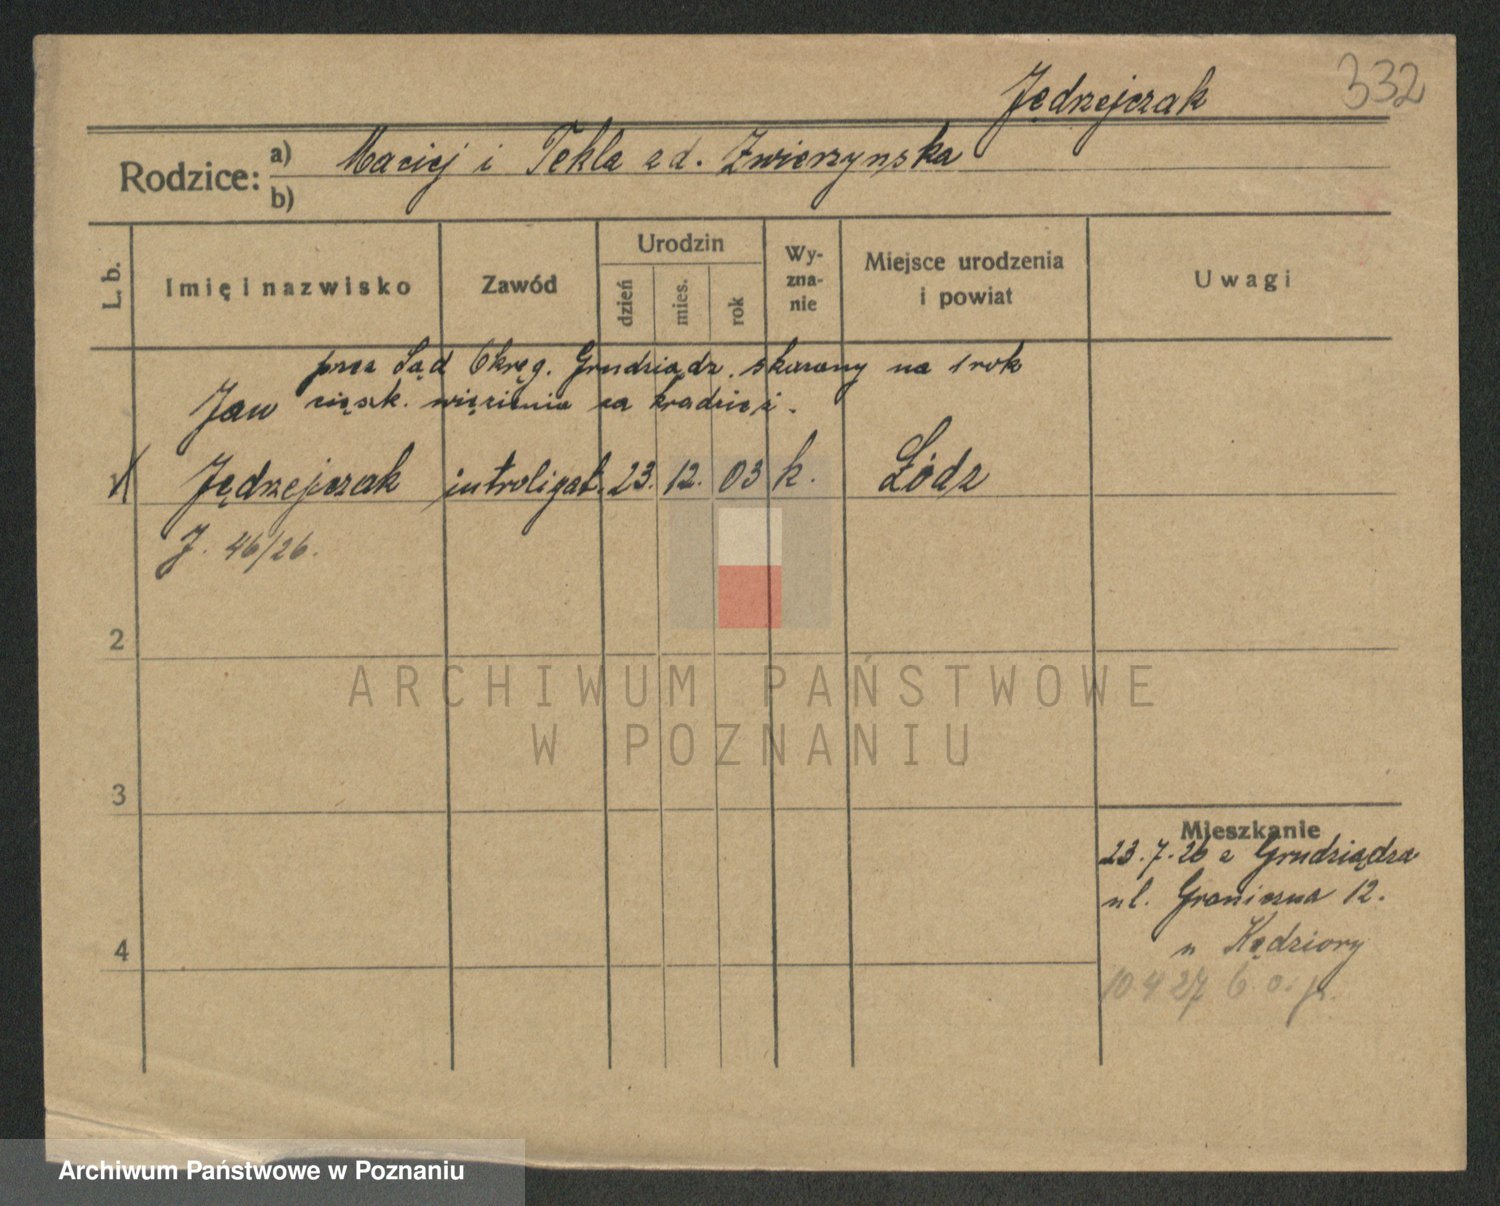 332
Jędrzejczak
Rodzice: a) Maciej i Tekla zd. Zwierzynska
b)
L. b.
Imię i nazwisko
Zawód
Urodzin
dzień
mies.
rok
Wy-
zna-
nie
Miejsce urodzenia
i powiat
Uwagi
przez Sąd Okręg. Grudziądz. skazany na 1 rok
ciężk. więzienia za kradzież.
Jan
1 Jędrzejczak introligat. 23. 12. 03 k. Łódz
J. 46/26.
2
ARCHIWUM PAŃSTWOWE
W POZNANIU
3
Mieszkanie
23.7.26 z Grudziądza
ul. Graniczna 12.
4
u Kędziory
10 4 27
Archiwum Państwowe w Poznaniu